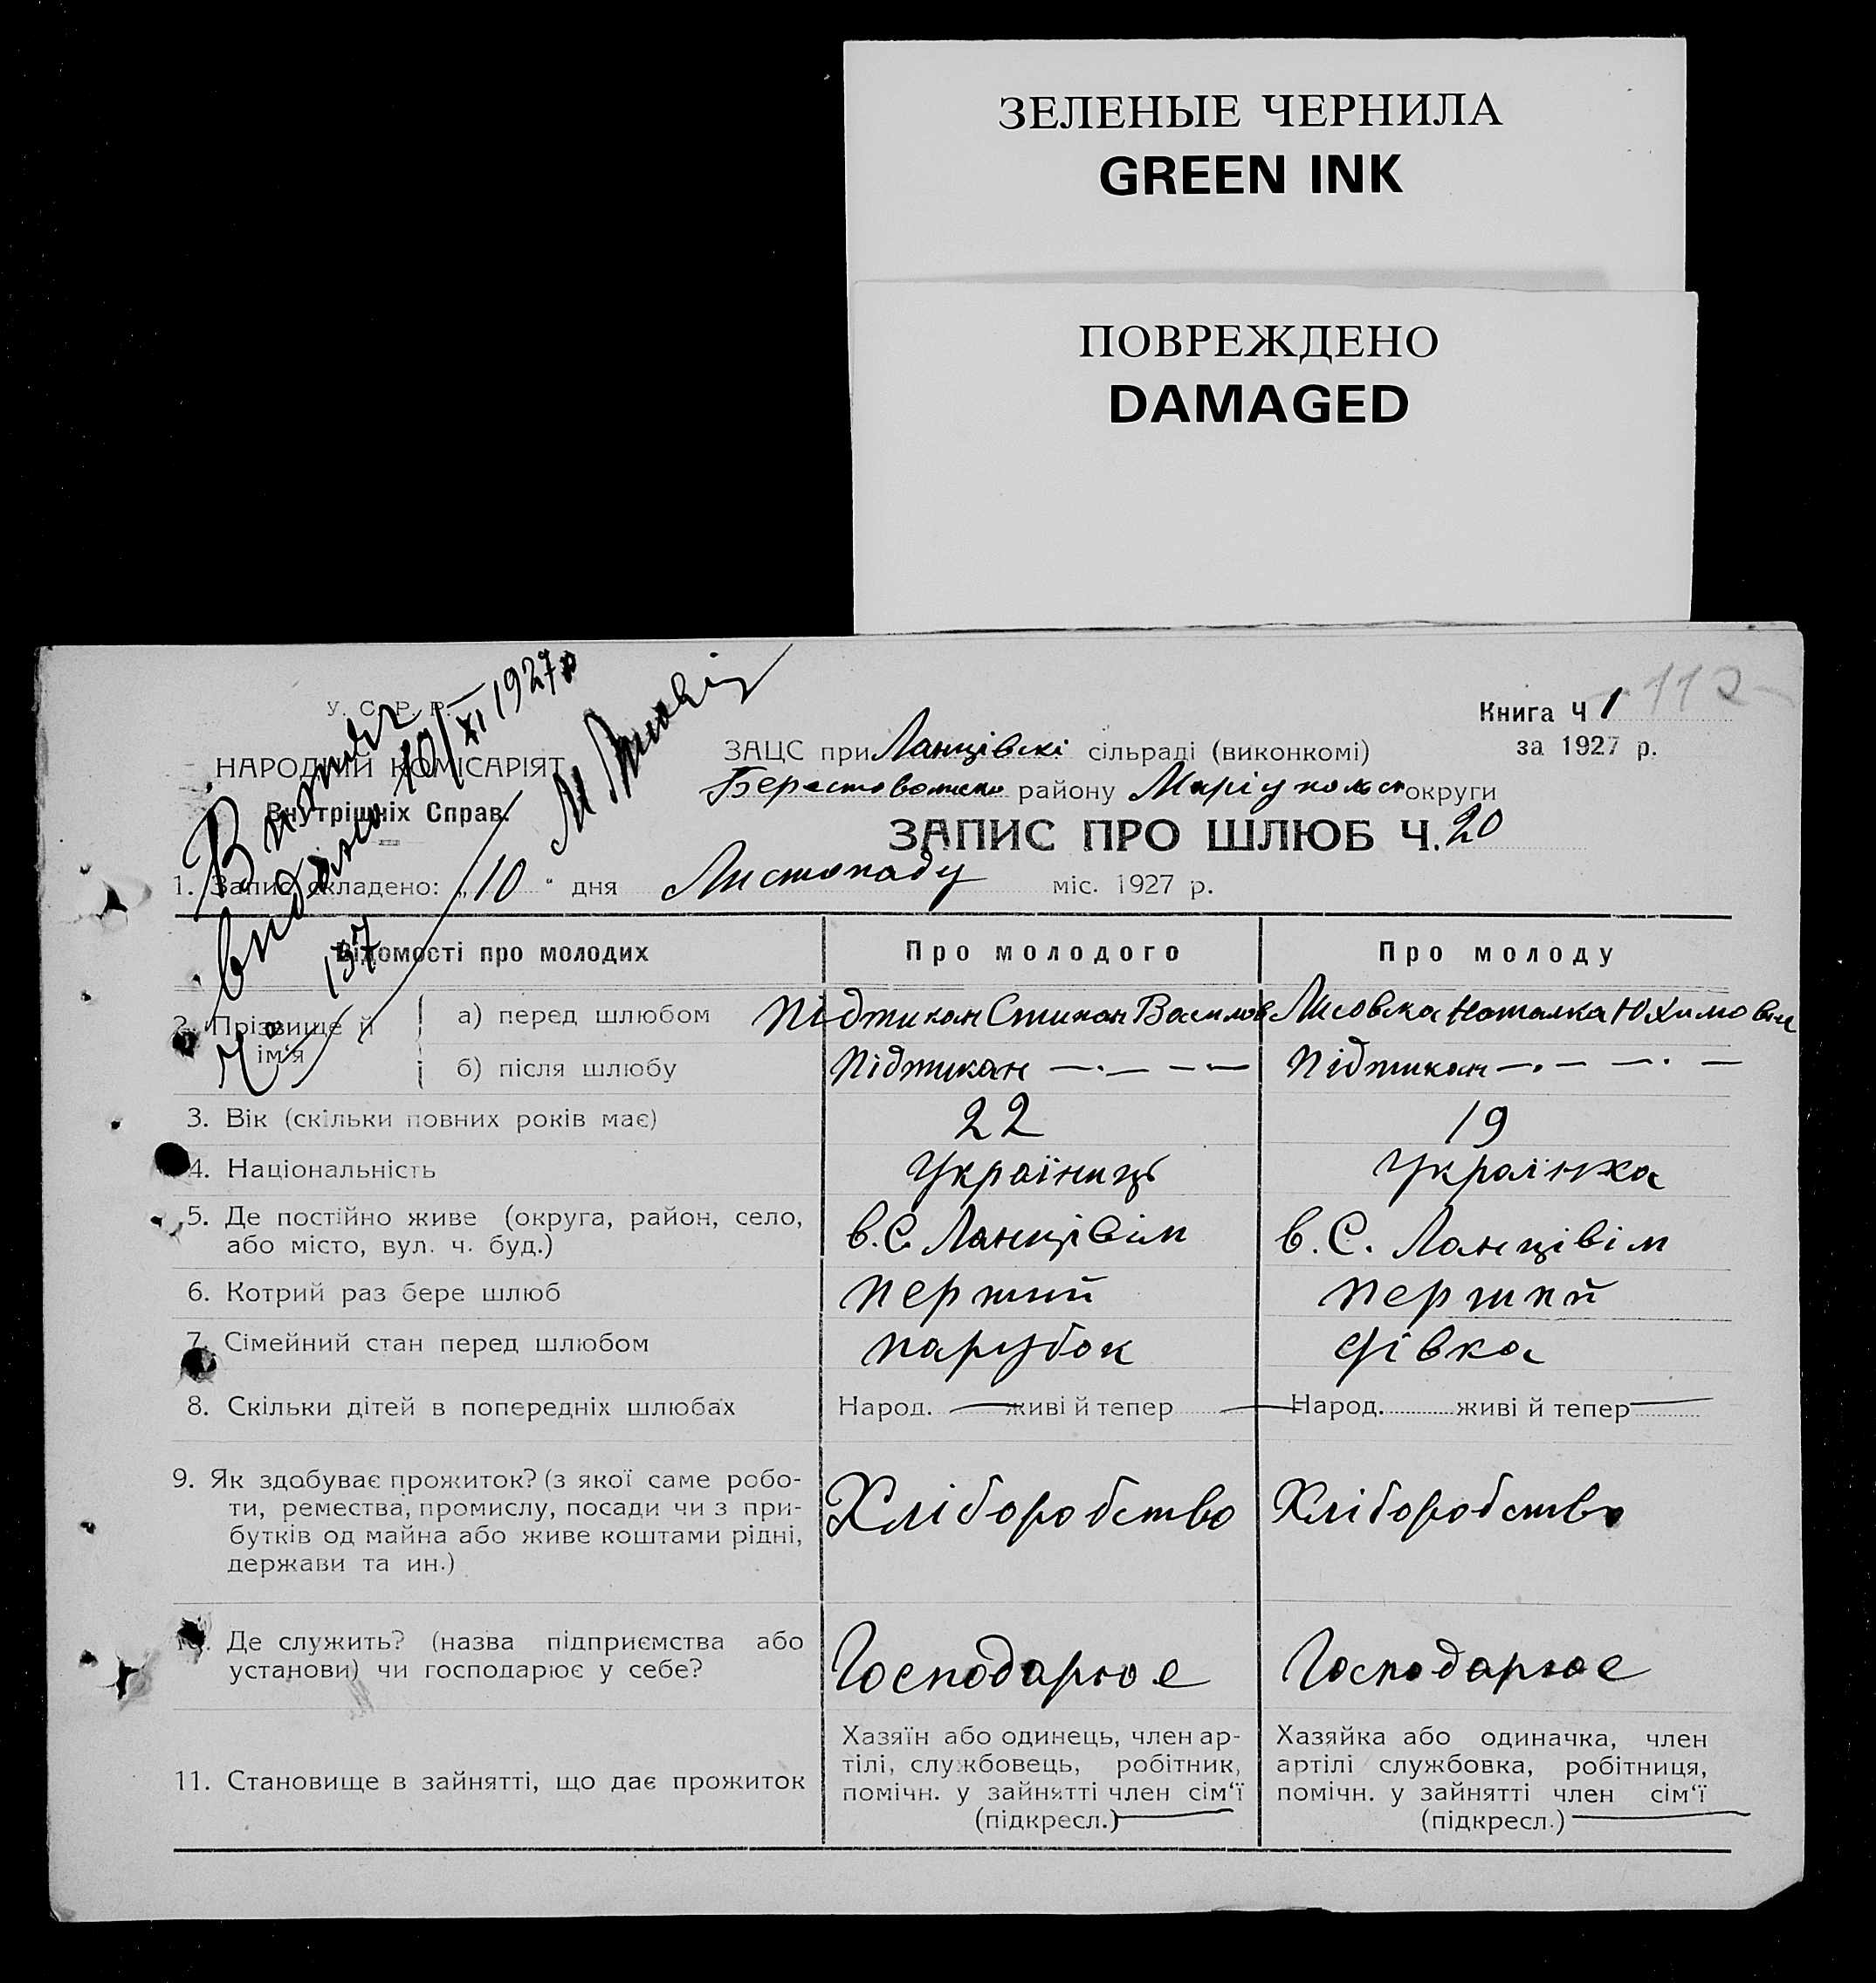 ЗЕЛЕНЫЕ ЧЕРНИЛА
GREEN INK
ПОВРЕЖДЕНО
DAMAGED
112
У. С. Р. Р.
НАРОДНИЙ КОМІСАРІЯТ
Внутрішніх Справ.
Випись
видано 10/XI 1927р
№ 197
Книга Ч 1
за 1927 р.
ЗАЦС при Ланцівскі сільраді (виконкомі)
району Маріупольск округи
ЗАПИС ПРО ШЛЮБ Ч. 20
1. Запис складено: „10" дня Листопаду міс. 1927 р.
Відомості про молодих Про молодого Про молоду
2. Прізвище й ім'я
а) перед шлюбом Підтикан Стипан Васильов Лисовска Наталка Юхимовни
б) після шлюбу Підтикан —·— — — Підтикан —·— —·—
3. Вік (скільки повних років має) 22 19
4. Національність Україниць Українка
5. Де постійно живе (округа, район, село, в. С. Ланцівім в. С. Ланцівім
або місто, вул. ч. буд.)
6. Котрий раз бере шлюб перший перший
7. Сімейний стан перед шлюбом парубок дівка
8. Скільки дітей в попередніх шлюбах Народ. — живі й тепер — Народ. живі й тепер —
9. Як здобуває прожиток? (з якої саме робо- Хліборобство Хліборобство
ти, ремества, промислу, посади чи з при-
бутків од майна або живе коштами рідні,
держави та ин.)
10. Де служить? (назва підприємства або Господарює Господарює
установи) чи господарює у себе?
11. Становище в зайнятті, що дає прожиток
Хазяїн або одинець, член ар-
тілі, службовець, робітник,
помічн. у зайнятті член сім'ї
(підкресл.)
Хазяйка або одиначка, член
артілі службовка, робітниця,
помічн. у зайнятті член сім'ї
(підкресл.)